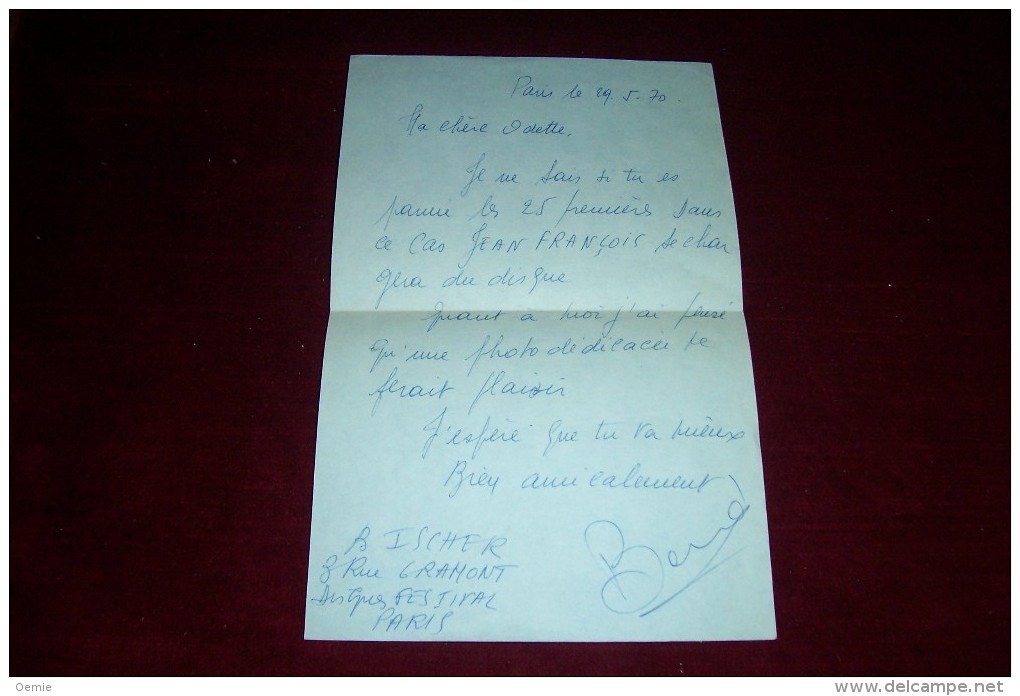 Paris le 29.5.70.
Ma chère Odette.
Je ne sais si tu es
parmi les 25 premières dans
ce cas JEAN FRANÇOIS se char
gera du disque
Quant a moi j'ai pensé
qu'une photo dédicacée te
ferait plaisir
J'espère que tu va mieux
Bien amicalement
B ISCHER
3 Rue GRAMONT
Disques FESTIVAL
PARIS
Oemie
www.delcampe.net